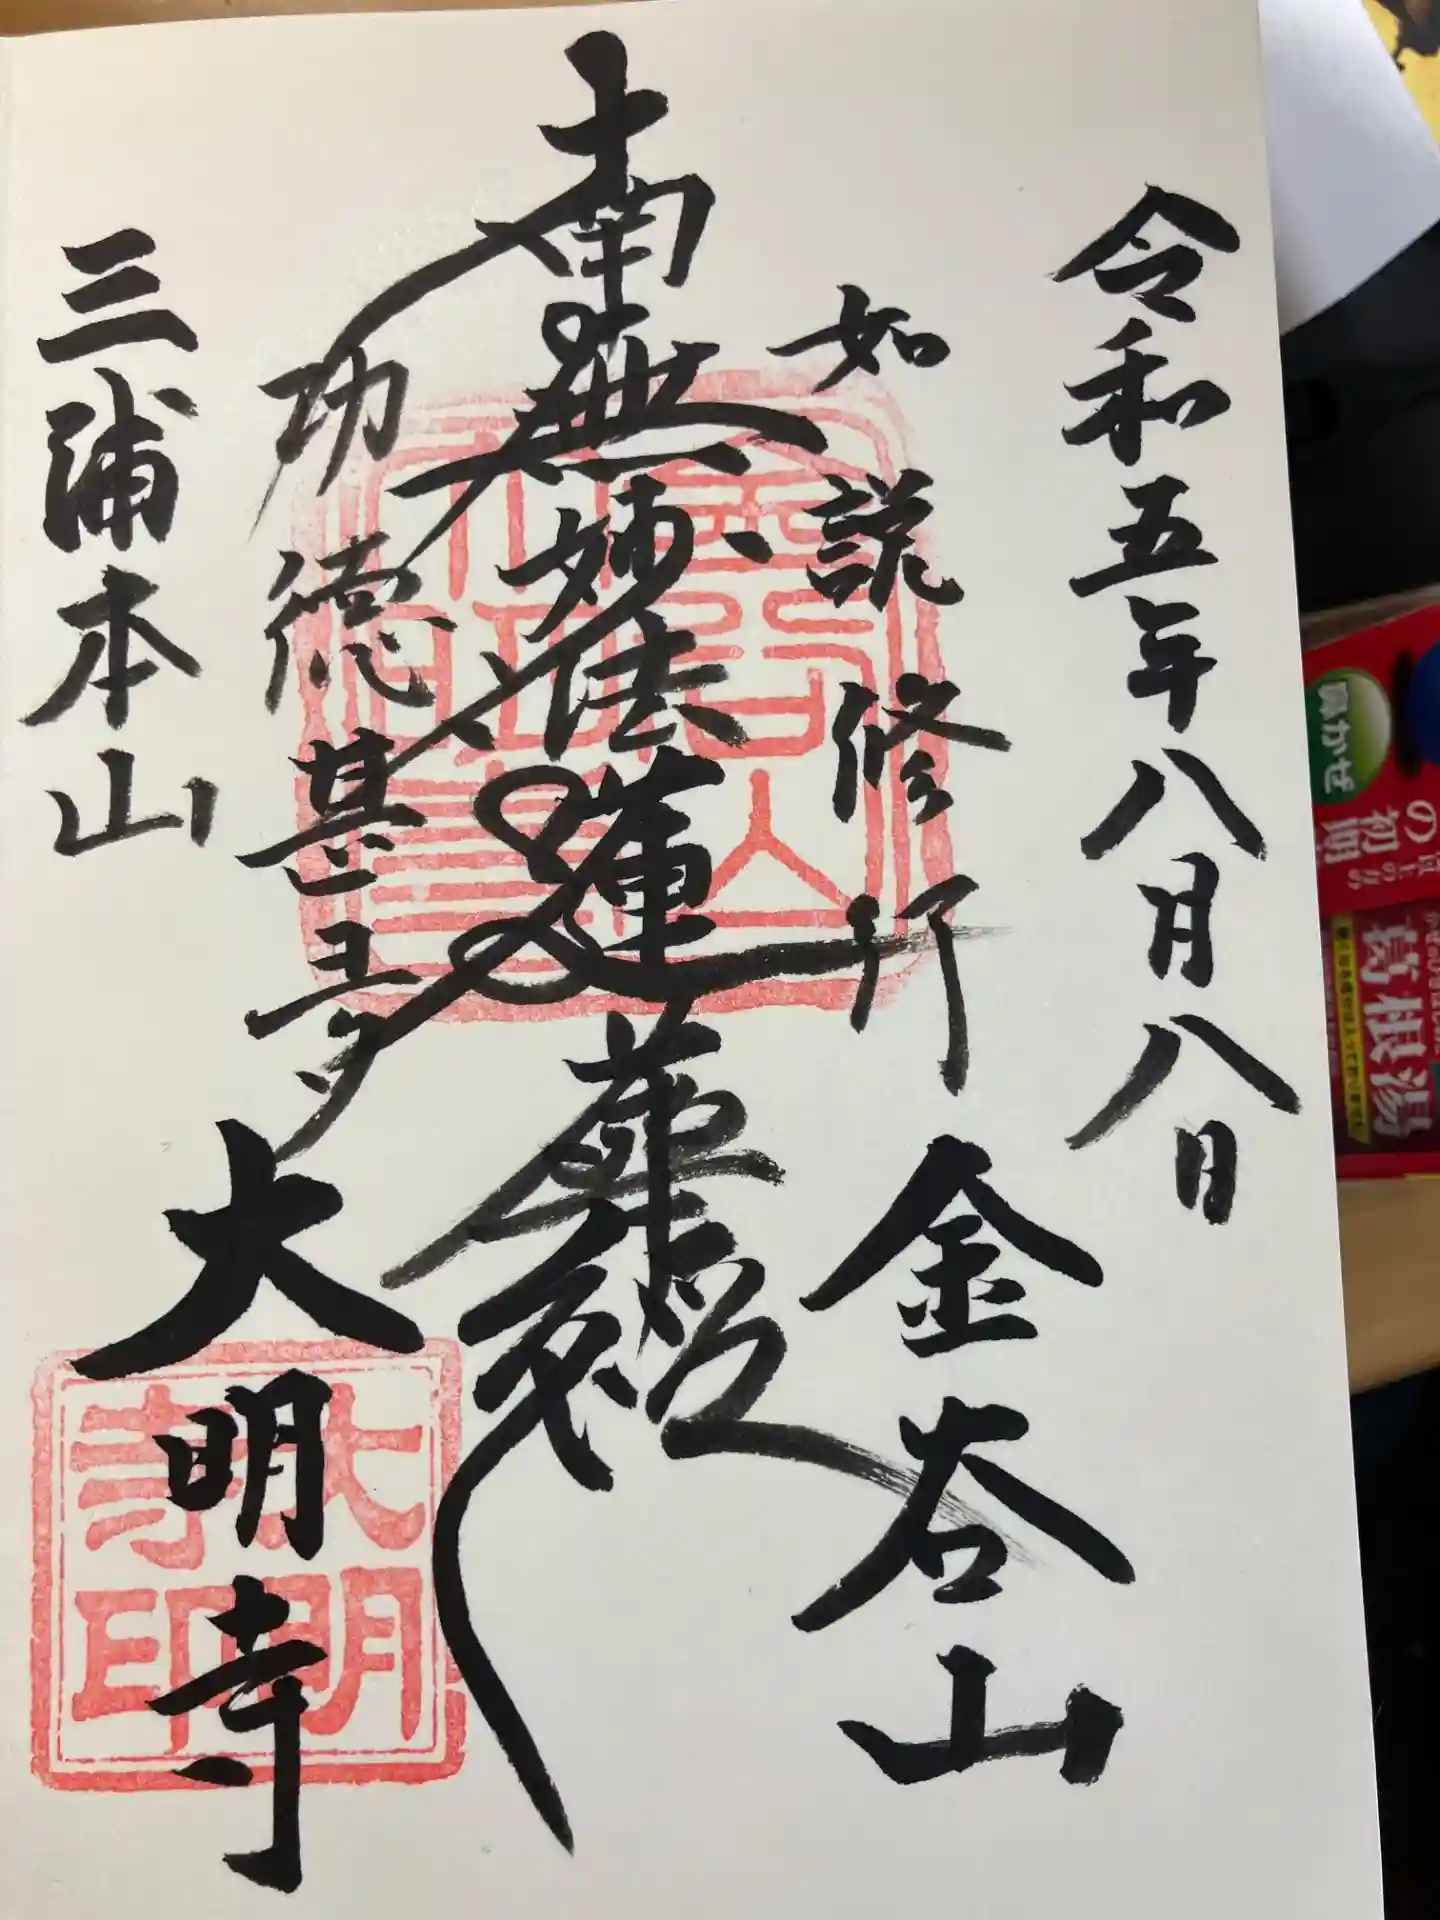 令和五年八月八日
金谷山
如説修行
南無妙法蓮華経
功徳甚多
三浦本山
大明寺
大明寺印
鼻かぜ
の初期
葛根湯